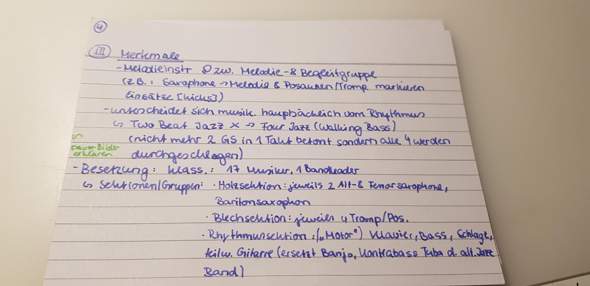 4
III Merkmale
- Melodieinstr & zw. Melodie- & Begleitgruppe
(z.B.: Saxophone → Melodie & Posaunen/Tromp. markieren
Einsätze [kicks])
- unterscheidet sich musik. hauptsächlich vom Rhythmus
↳ Two Beat Jazz x → Four Jazz (Walking Bass)
(nicht mehr 2 GS in 1 Takt betont sondern alle 4 werden
durchgeschlagen)
Bilder
erklären
- Besetzung: klass.: 17 Musiker, 1 Bandleader
↳ Sektionen/Gruppen: • Holzsektion: jeweils 2 Alt- & Tenorsaxophone,
Baritonsaxophon
• Blechsektion: jeweils 4 Tromp/Pos.
• Rhythmussektion: („Motor“) Klavier, Bass, Schlagz.,
teilw. Gitarre (ersetzt Banjo, Kontrabass Tuba d. alt. Jazz
Band)